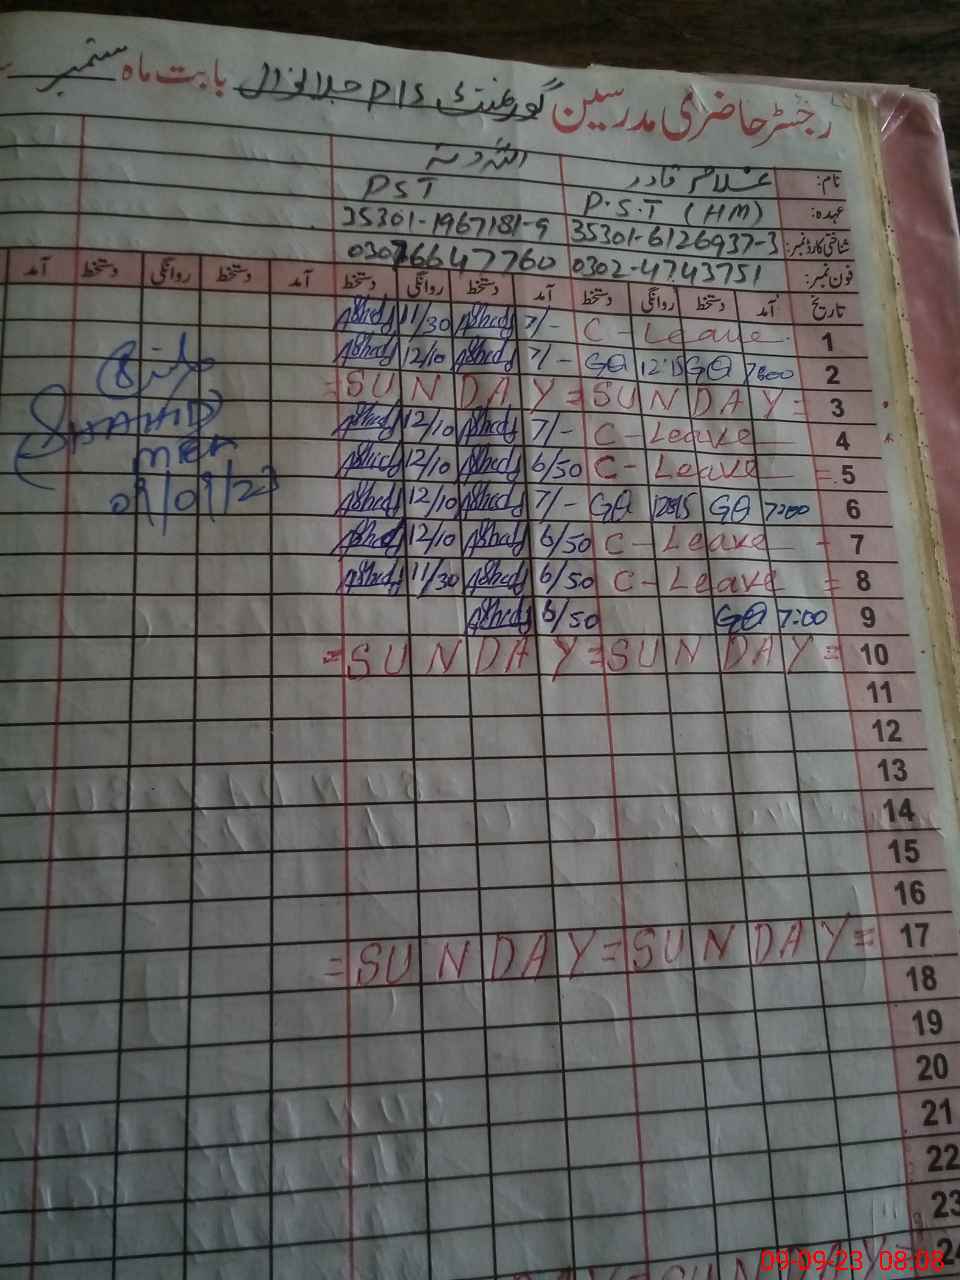 رجسٹر حاضری مدرسین گورنمنٹ P/S جلالوال بابت ماہ ستمبر
نام: غلام قادر اللہ دتہ
عہدہ: P.S.T (HM) PST
شناختی کارڈ نمبر: 35301-6126937-3 35301-1967181-9
فون نمبر: 0302-4743751 03076647760
تاریخ آمد دستخط روانگی دستخط آمد دستخط روانگی دستخط آمد دستخط روانگی دستخط آمد
1 C - Leave 7/- 11/30
2 7:00 GQ 12:15 GQ 7/- 12/10
3 = SUNDAY = SUNDAY =
4 C - Leave 7/- 12/10
5 C - Leave = 6/50 12/10
6 7:00 GQ 12:15 GQ 7/- 12/10
7 C - Leave - 6/50 12/10
8 C - Leave = 6/50 11/30
9 7:00 GQ 6/50
10 = SUNDAY = SUNDAY =
11
12
13
14
15
16
17 = SUNDAY = SUNDAY =
18
19
20
21
22
23
24 SUNDAY
SHAHID
MEA
09/09/23
09-09-23 08:08